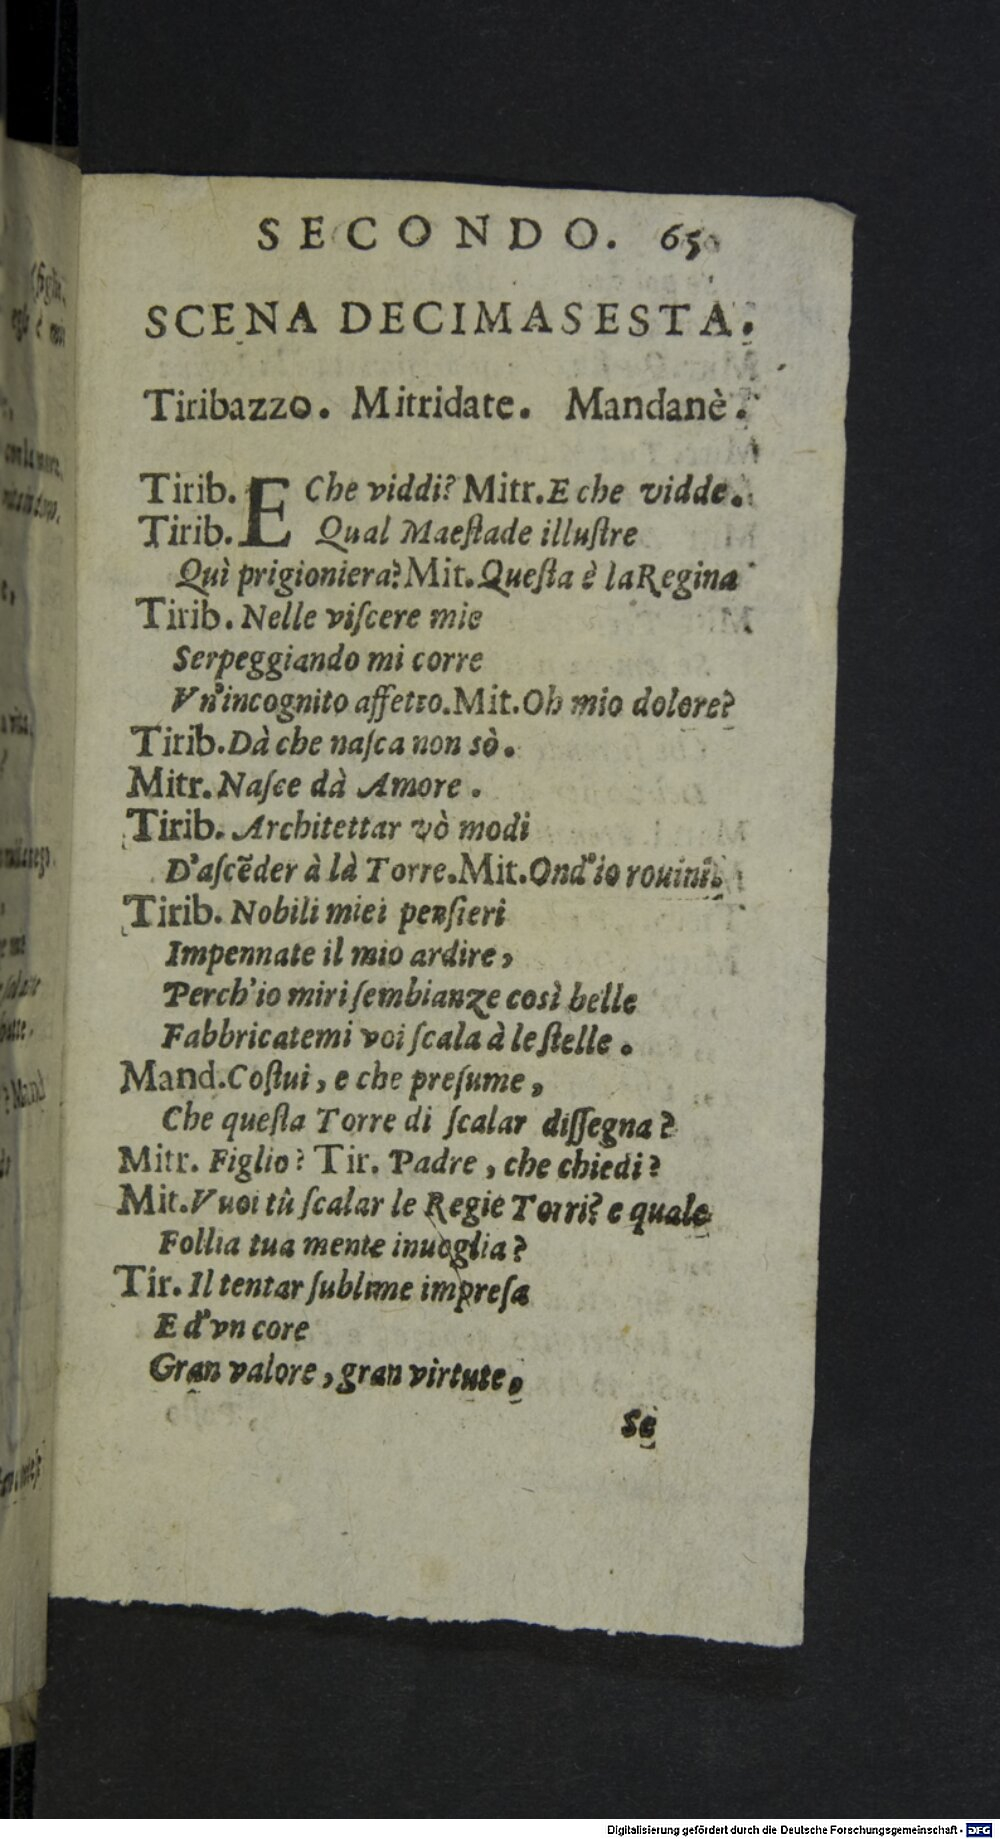 SECONDO. 65
SCENA DECIMASESTA.
Tiribazzo. Mitridate. Mandanè.
Tirib. E Che viddi? Mitr. E che vidde.
Tirib. Qual Maeſtade illuſtre
Quì prigioniera? Mit. Queſta è la Regina
Tirib. Nelle viſcere mie
Serpeggiando mi corre
Vn'incognito affetto. Mit. Oh mio dolore?
Tirib. Dà che naſca non sò.
Mitr. Naſce dà Amore.
Tirib. Architettar vò modi
D'aſcẽder à là Torre. Mit. Ond'io rouini.
Tirib. Nobili miei penſieri
Impennate il mio ardire,
Perch'io miri ſembianze così belle
Fabbricatemi voi ſcala à le ſtelle.
Mand. Coſtui, e che preſume,
Che queſta Torre di ſcalar diſſegna?
Mitr. Figlio? Tir. Padre, che chiedi?
Mit. Vuoi tù ſcalar le Regie Torri? e quale
Follia tua mente inuoglia?
Tir. Il tentar ſublime impreſa
E d'vn core
Gran valore, gran virtute.
Se
Digitalisierung gefördert durch die Deutsche Forschungsgemeinschaft - DFG